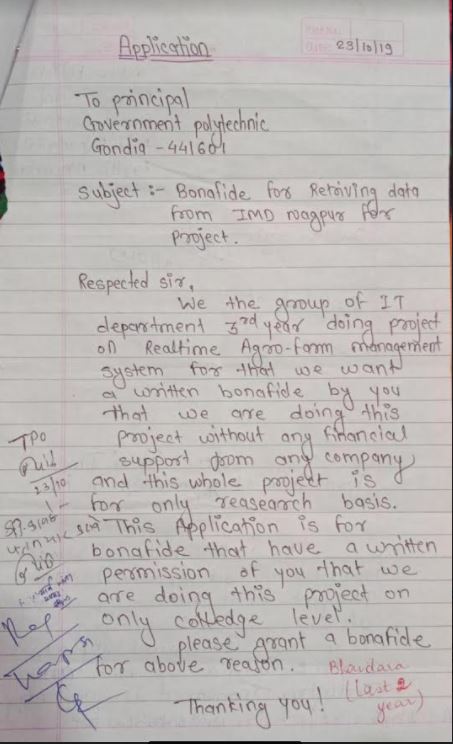 Application
23/10/19
To principal
Government polytechnic
Gondia - 441601
Subject :- Bonafide for Retriving data
from IMD nagpur for
project.
Respected sir,
We the group of IT
department 3rd year doing project
on Realtime Agro-farm management
system for that we want
a written bonafide by you
that we are doing this
project without any financial
support from any company
and this whole project is
for only reasearch basis.
This Application is for
bonafide that have a written
permission of you that we
are doing this project on
only colledge level.
please grant a bonafide
for above reason.
Thanking you!
TPO
23/10
Bhandara
(last 2
year)